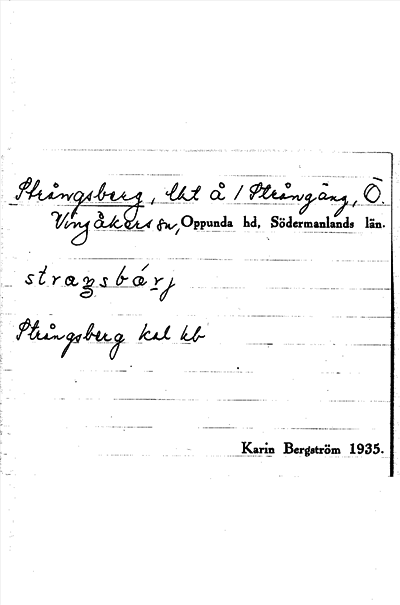 Strångsberg, lht å 1 Strångäng, Ö.
Vingåkers sn, Oppunda hd, Södermanlands län.
straŋsbärj
Strångsberg kal kb
Karin Bergström 1935.